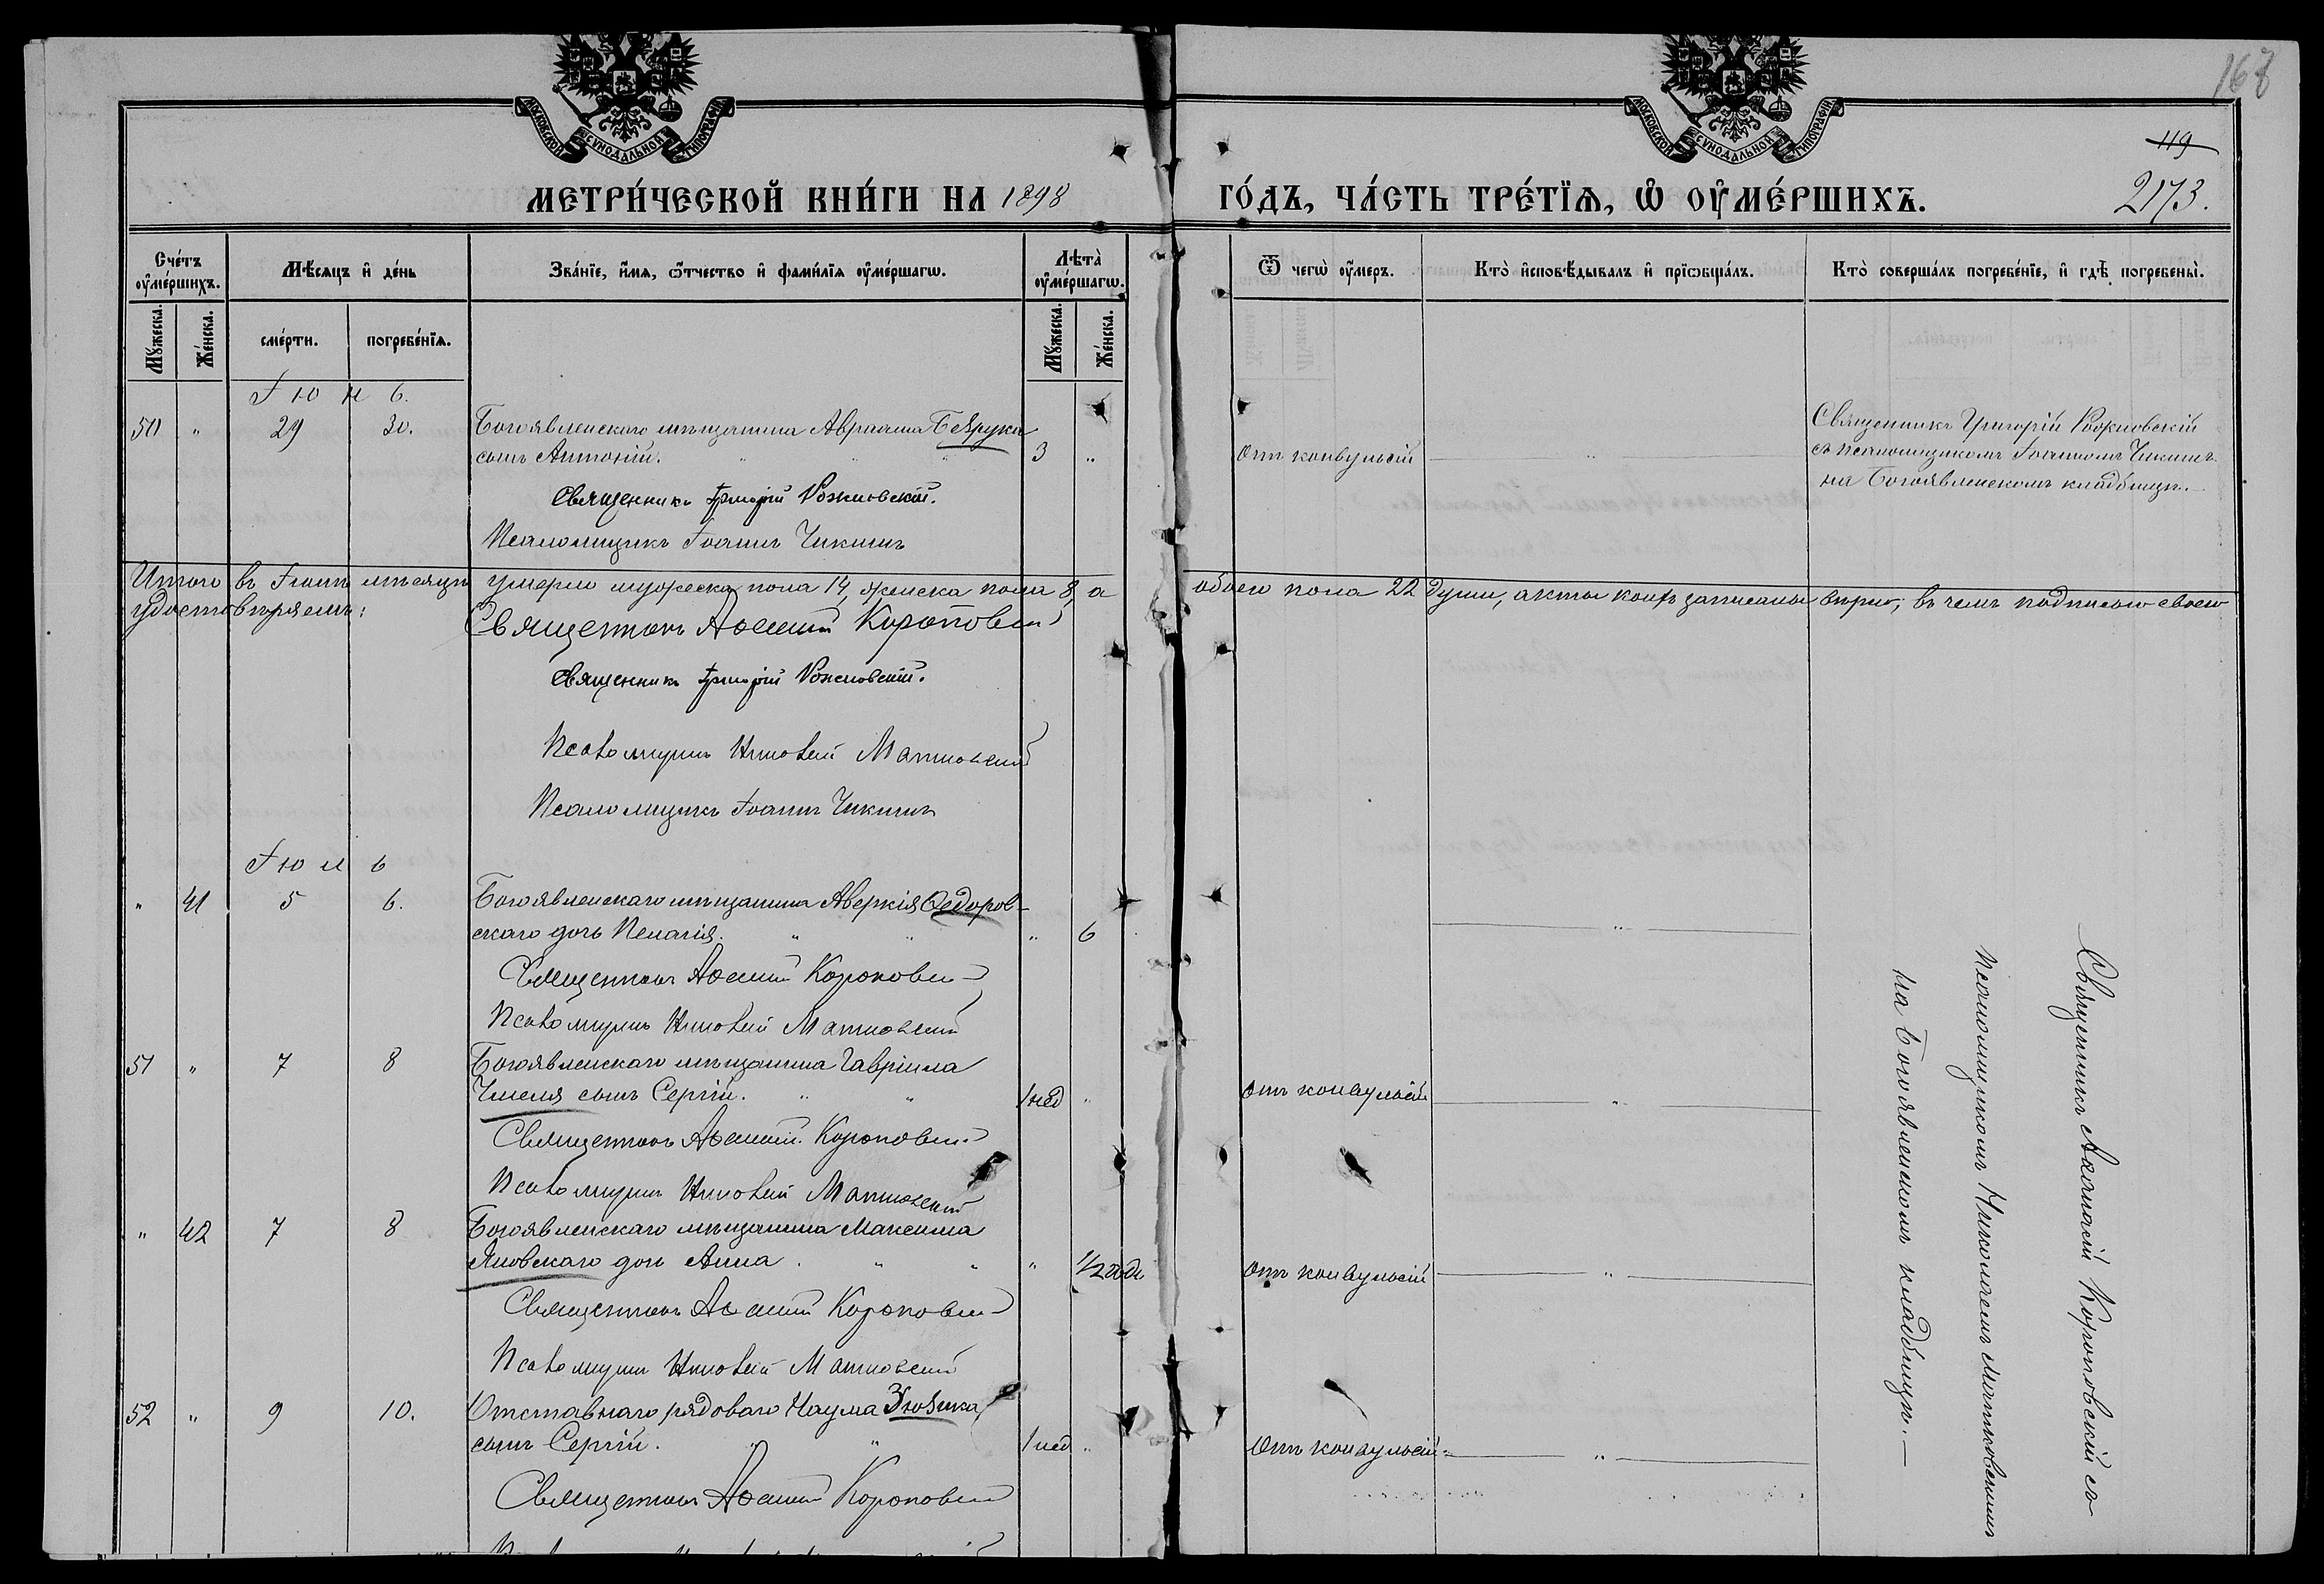 168
МОСКОВСКОЙ СѴНОДАЛЬНОЙ ТИПОГРАФІИ
МОСКОВСКОЙ СѴНОДАЛЬНОЙ ТИПОГРАФІИ
119
МЕТРИ́ЧЕСКОЙ КНИ́ГИ НА 1898 ГО́ДЪ, ЧА́СТЬ ТРЕ́ТЇѦ, Ѡ҆ ОУ҆МЕ́РШИХЪ.
2173.
Сче́тъ оу҆ме́ршихъ.
Мꙋ́жеска.
Же́нска.
Мѣ́сѧцъ и҆ де́нь
сме́рти.
погребе́нїѧ.
Зва́нїе, и҆́мѧ, ѻ҆́тчество и҆ фами́лїѧ оу҆ме́ршагѡ.
Лѣта̀ оу҆ме́ршагѡ.
Мꙋ́жеска.
Же́нска.
Ѿ чегѡ̀ оу҆́меръ.
Кто̀ и҆сповѣ́дывалъ и҆ прїѡбща́лъ.
Кто̀ соверша́лъ погребе́нїе, и҆ гдѣ̀ погребены̀.
Іюнь.
50 " 29 30. Богоявленскаго мѣщанина Авраама
сынъ Антоній. 3 " отъ конвульсій "
Священникъ Григорій Рожновскій
съ псаломщикомъ Іоанномъ
на Богоявленскомъ кладбищѣ.
Священникъ Григорій Рожновскій.
Псаломщикъ Іоаннъ
Итого въ Іюнѣ мѣсяцѣ умерло мужеска пола 14, женска пола 8, а обоего пола 22 души, акты коихъ записаны вѣрно, въ чемъ подписью своею
удостовѣряемъ:
Священникъ Короповскій
Священникъ Григорій Рожновскій.
Псаломщикъ Николай
Псаломщикъ Іоаннъ
Іюль
" 41 5 6. Богоявленскаго мѣщанина Аверкія Ѳедоров-
скаго дочь Пелагія. " 6 "
Священникъ Короповскій
Псаломщикъ Николай
51 " 7 8 Богоявленскаго мѣщанина Гавріила
Чмеля сынъ Сергій. 1 нед " отъ конвульсій "
Священникъ Короповскій
Псаломщикъ Николай
" 42 7 8 Богоявленскаго мѣщанина Максима
Яновскаго дочь Анна. " 1/2 года отъ конвульсій "
Священникъ Короповскій
Псаломщикъ Николай
52 " 9 10. Отставнаго рядоваго Наума
сынъ Сергій. 1 нед " отъ конвульсій "
Священникъ Короповскій
Священникъ Короповскій съ
псаломщикомъ Николаемъ
на Богоявленскомъ кладбищѣ.